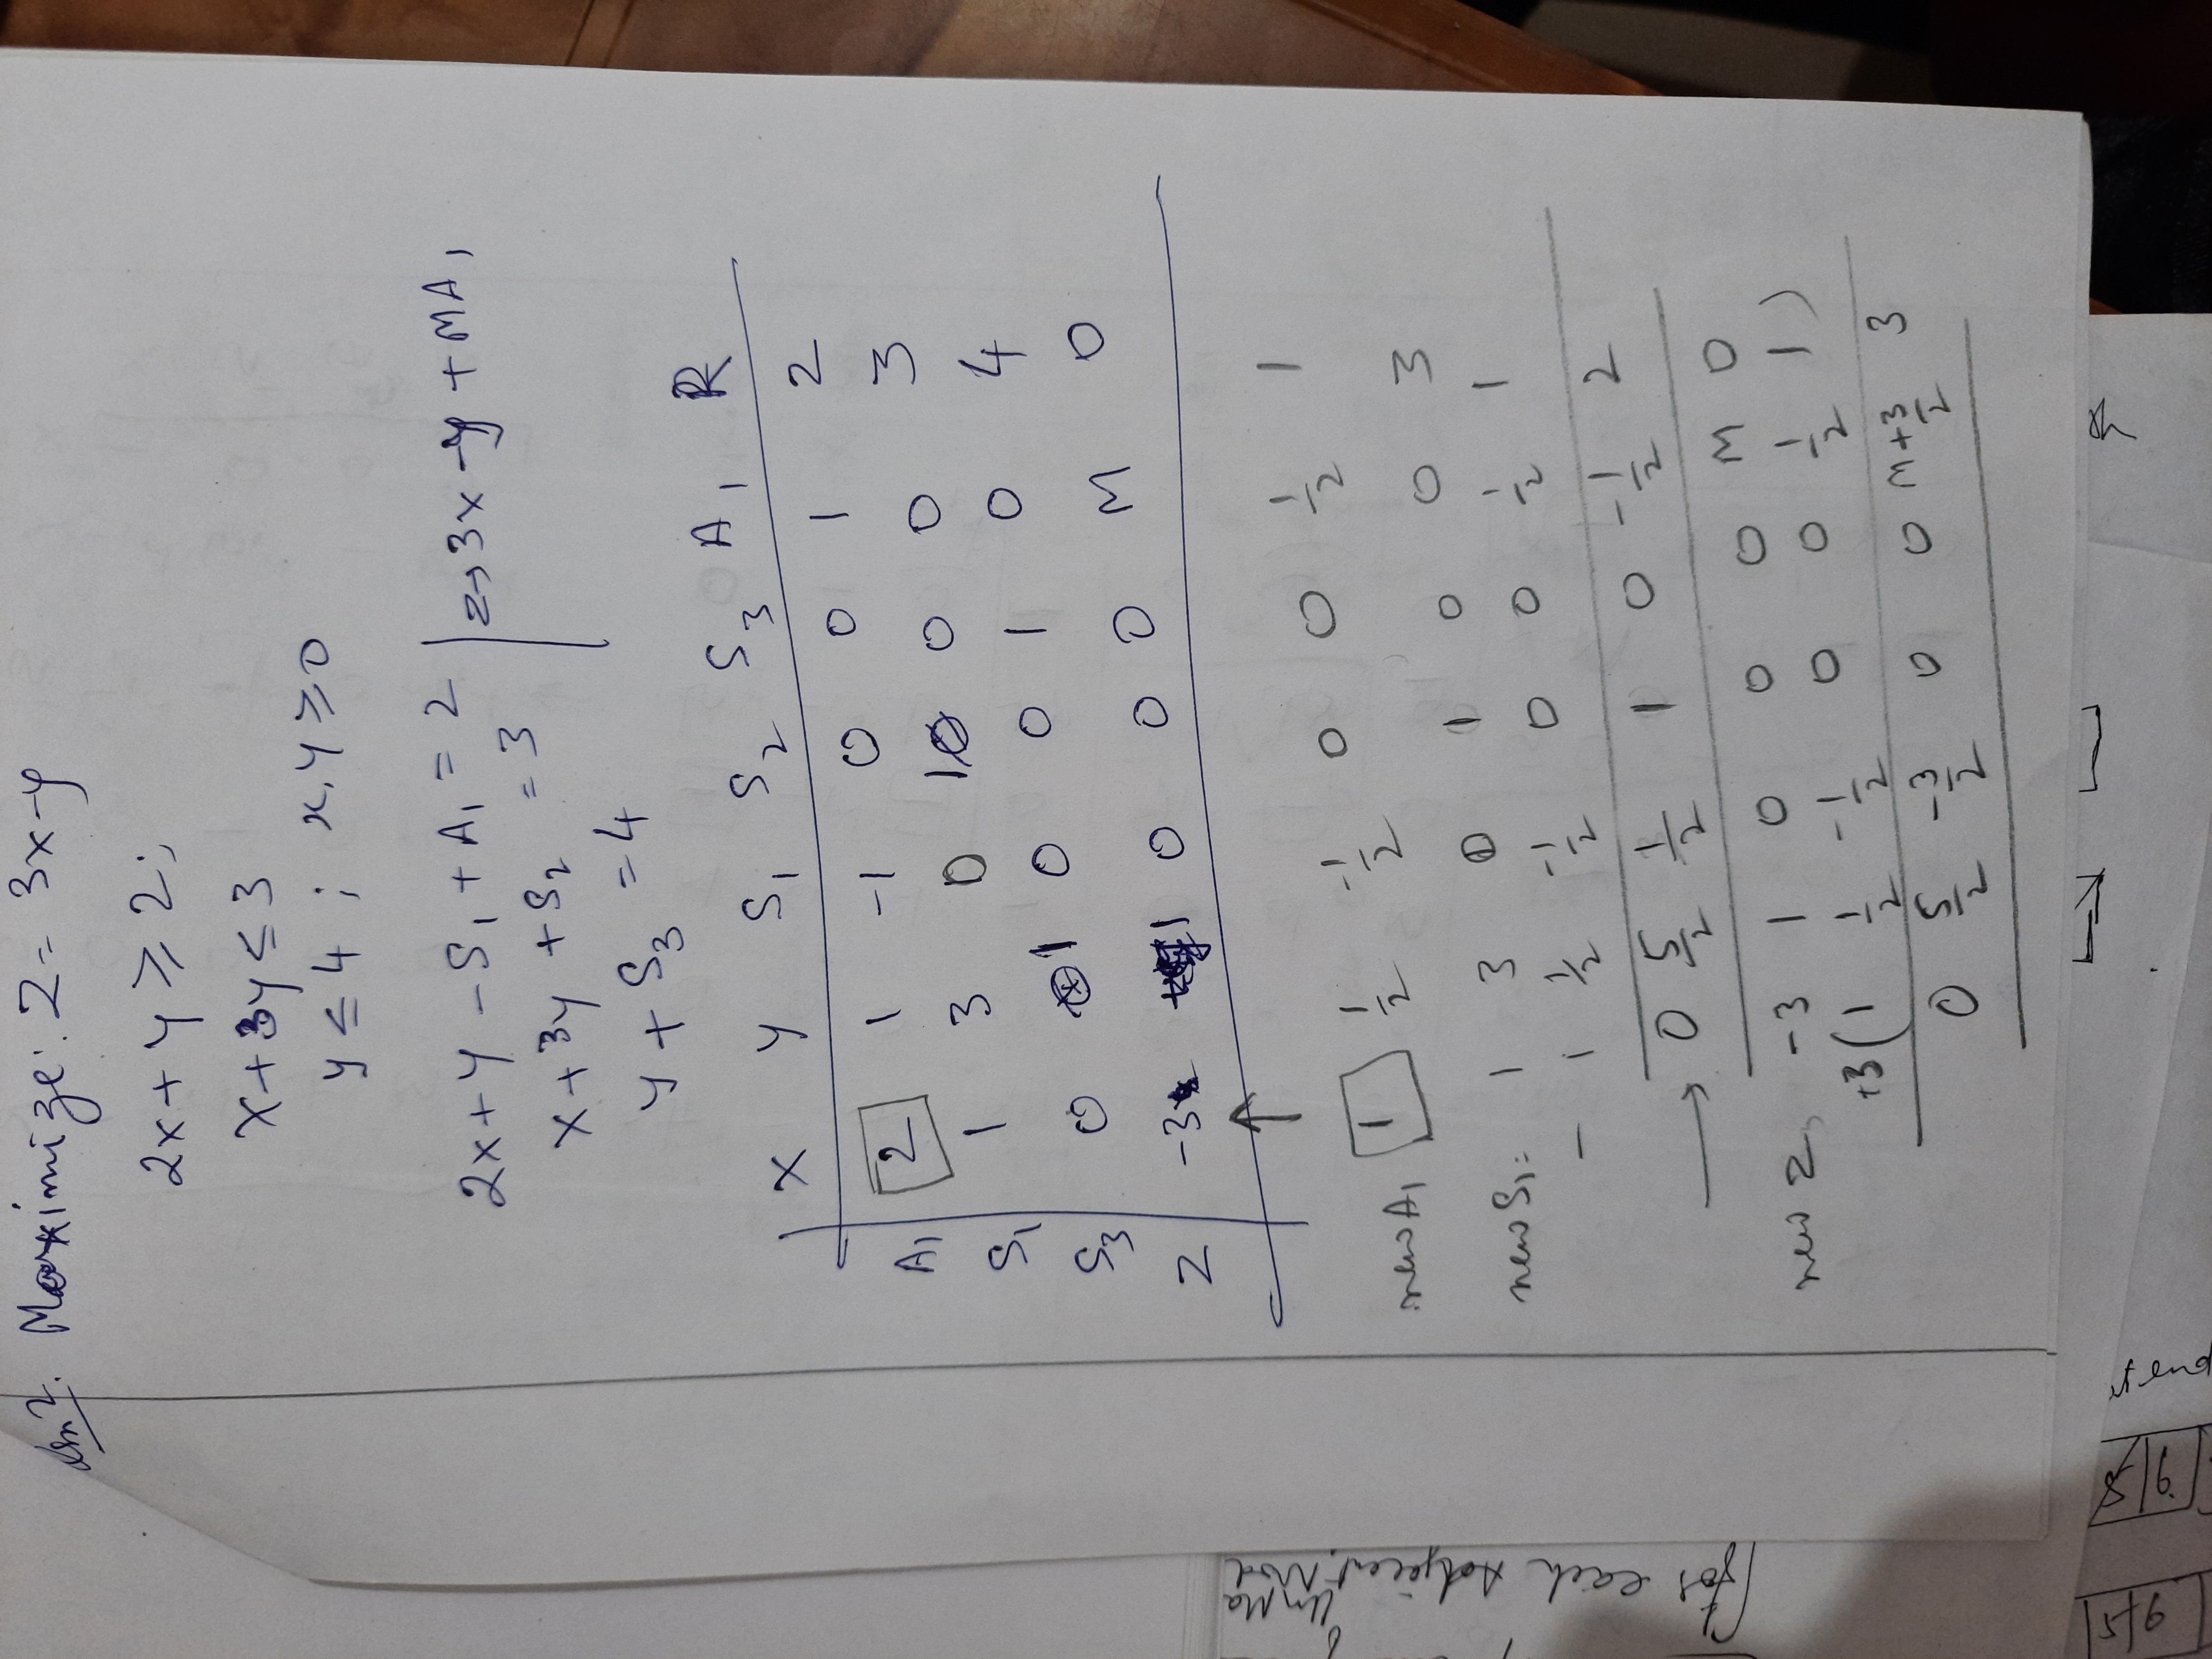 Maximize: Z = 3x-y
2x + y ≥ 2;
x + 3y ≤ 3
y ≤ 4 ; x, y ≥ 0
2x + y - S1 + A1 = 2 | Z → 3x - y + MA1
x + 3y + S2 = 3
y + S3 = 4
x y S1 S2 S3 A1 R
A1 2 1 -1 0 0 1 2
S1 1 3 0 1 0 0 3
S3 0 1 0 0 1 0 4
Z -3 1 0 0 0 M 0
↑
new A1 1 1/2 -1/2 0 0 1/2 1
new S1= 1 3 0 1 0 0 3
- 1 1/2 -1/2 0 0 1/2 1
→ 0 5/2 1/2 1 0 -1/2 2
new Z, -3 1 0 0 0 M 0
+3(1 1/2 -1/2 0 0 1/2 1)
0 5/2 -3/2 0 0 M+3/2 3
for each Adjecent Nod
9/5